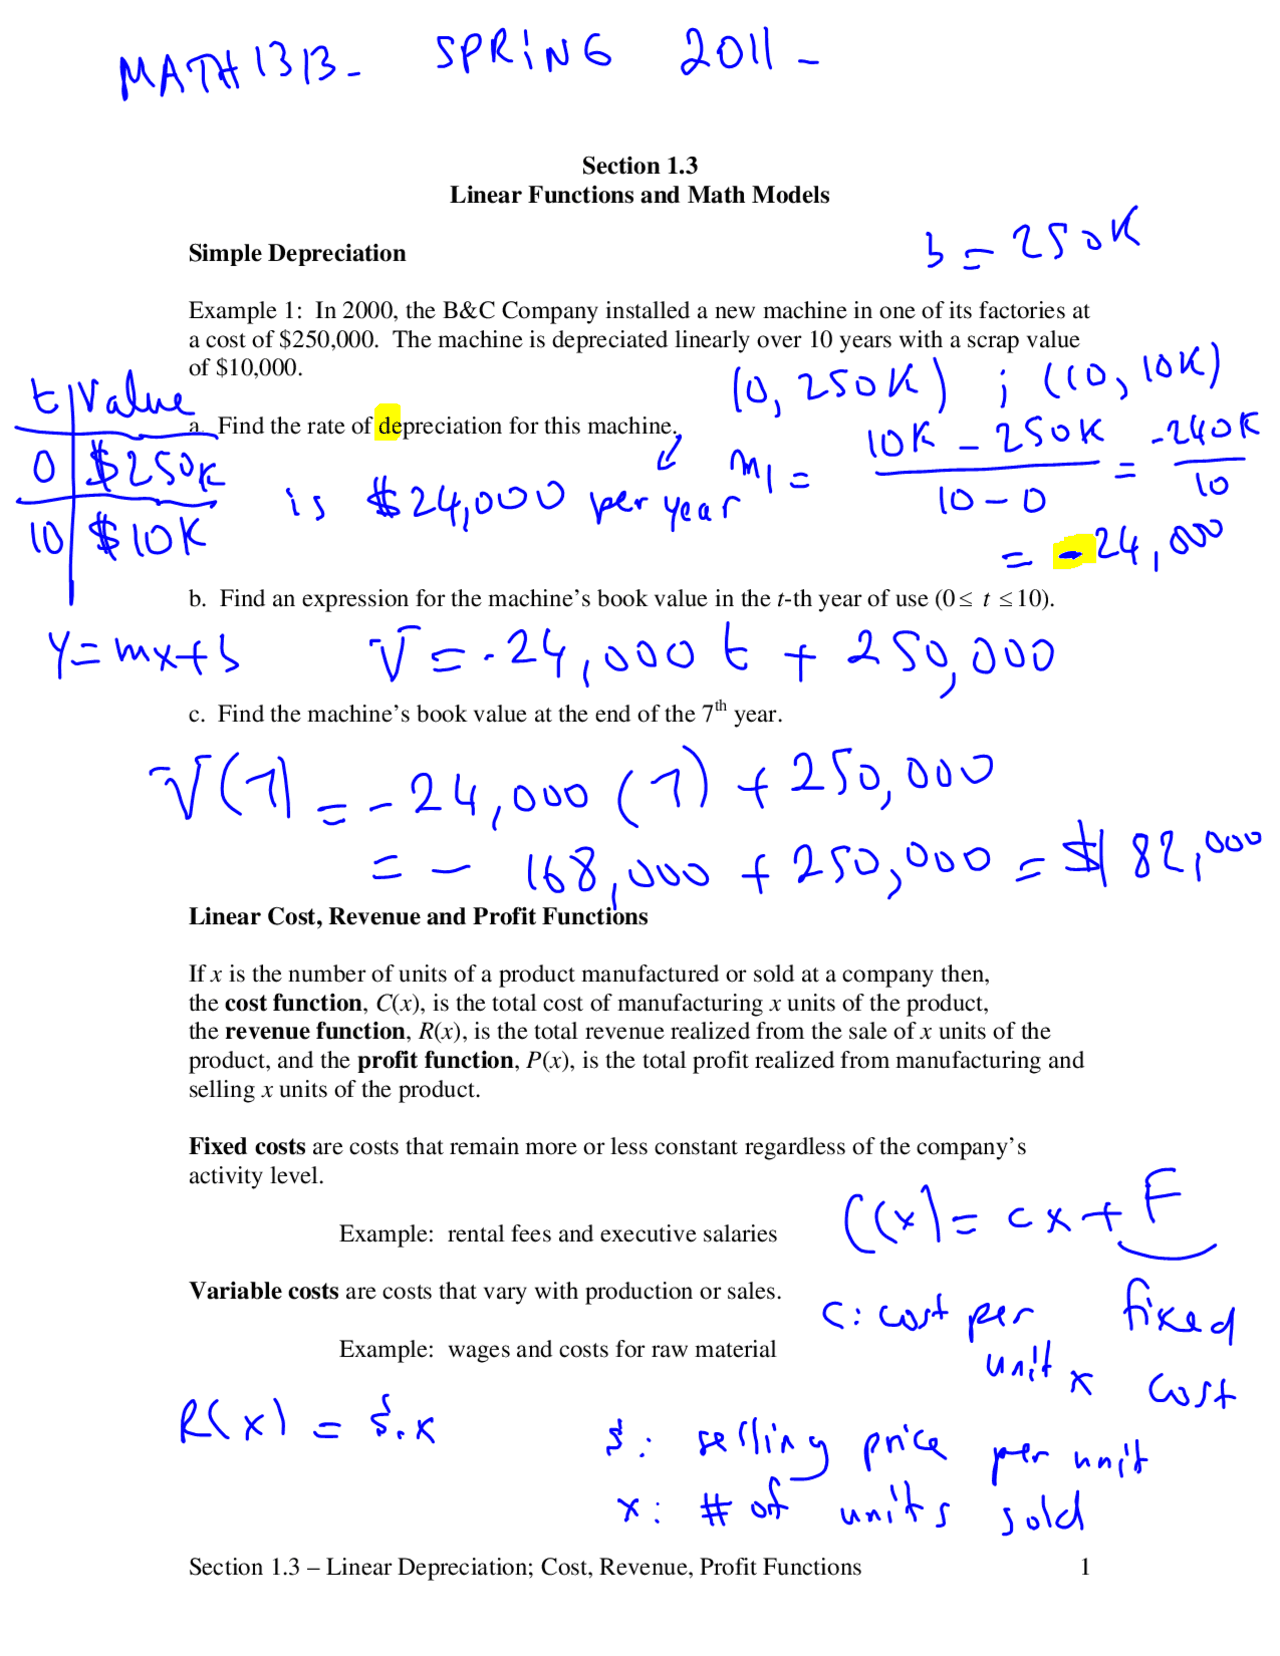 MATH1313- SPRING 2011 -
Section 1.3
Linear Functions and Math Models
b = 250K
Simple Depreciation
Example 1: In 2000, the B&C Company installed a new machine in one of its factories at
a cost of $250,000. The machine is depreciated linearly over 10 years with a scrap value
of $10,000.
(0, 250K) ; (10, 10K)
t | Value
0 | $250K
10 | $10K
a. Find the rate of depreciation for this machine.
is $24,000 per year
m1 = (10K - 250K)/(10 - 0) = -240K/10
= -24,000
b. Find an expression for the machine's book value in the t-th year of use (0≤ t ≤10).
y = mx+b V = -24,000 t + 250,000
c. Find the machine's book value at the end of the 7th year.
V(7) = -24,000 (7) + 250,000
= - 168,000 + 250,000 = $ 82,000
Linear Cost, Revenue and Profit Functions
If x is the number of units of a product manufactured or sold at a company then,
the cost function, C(x), is the total cost of manufacturing x units of the product,
the revenue function, R(x), is the total revenue realized from the sale of x units of the
product, and the profit function, P(x), is the total profit realized from manufacturing and
selling x units of the product.
Fixed costs are costs that remain more or less constant regardless of the company's
activity level.
Example: rental fees and executive salaries
C(x) = cx + F
Variable costs are costs that vary with production or sales.
c: cost per unit x
fixed cost
Example: wages and costs for raw material
R(x) = s.x
s: selling price per unit
x: # of units sold
Section 1.3 – Linear Depreciation; Cost, Revenue, Profit Functions 1